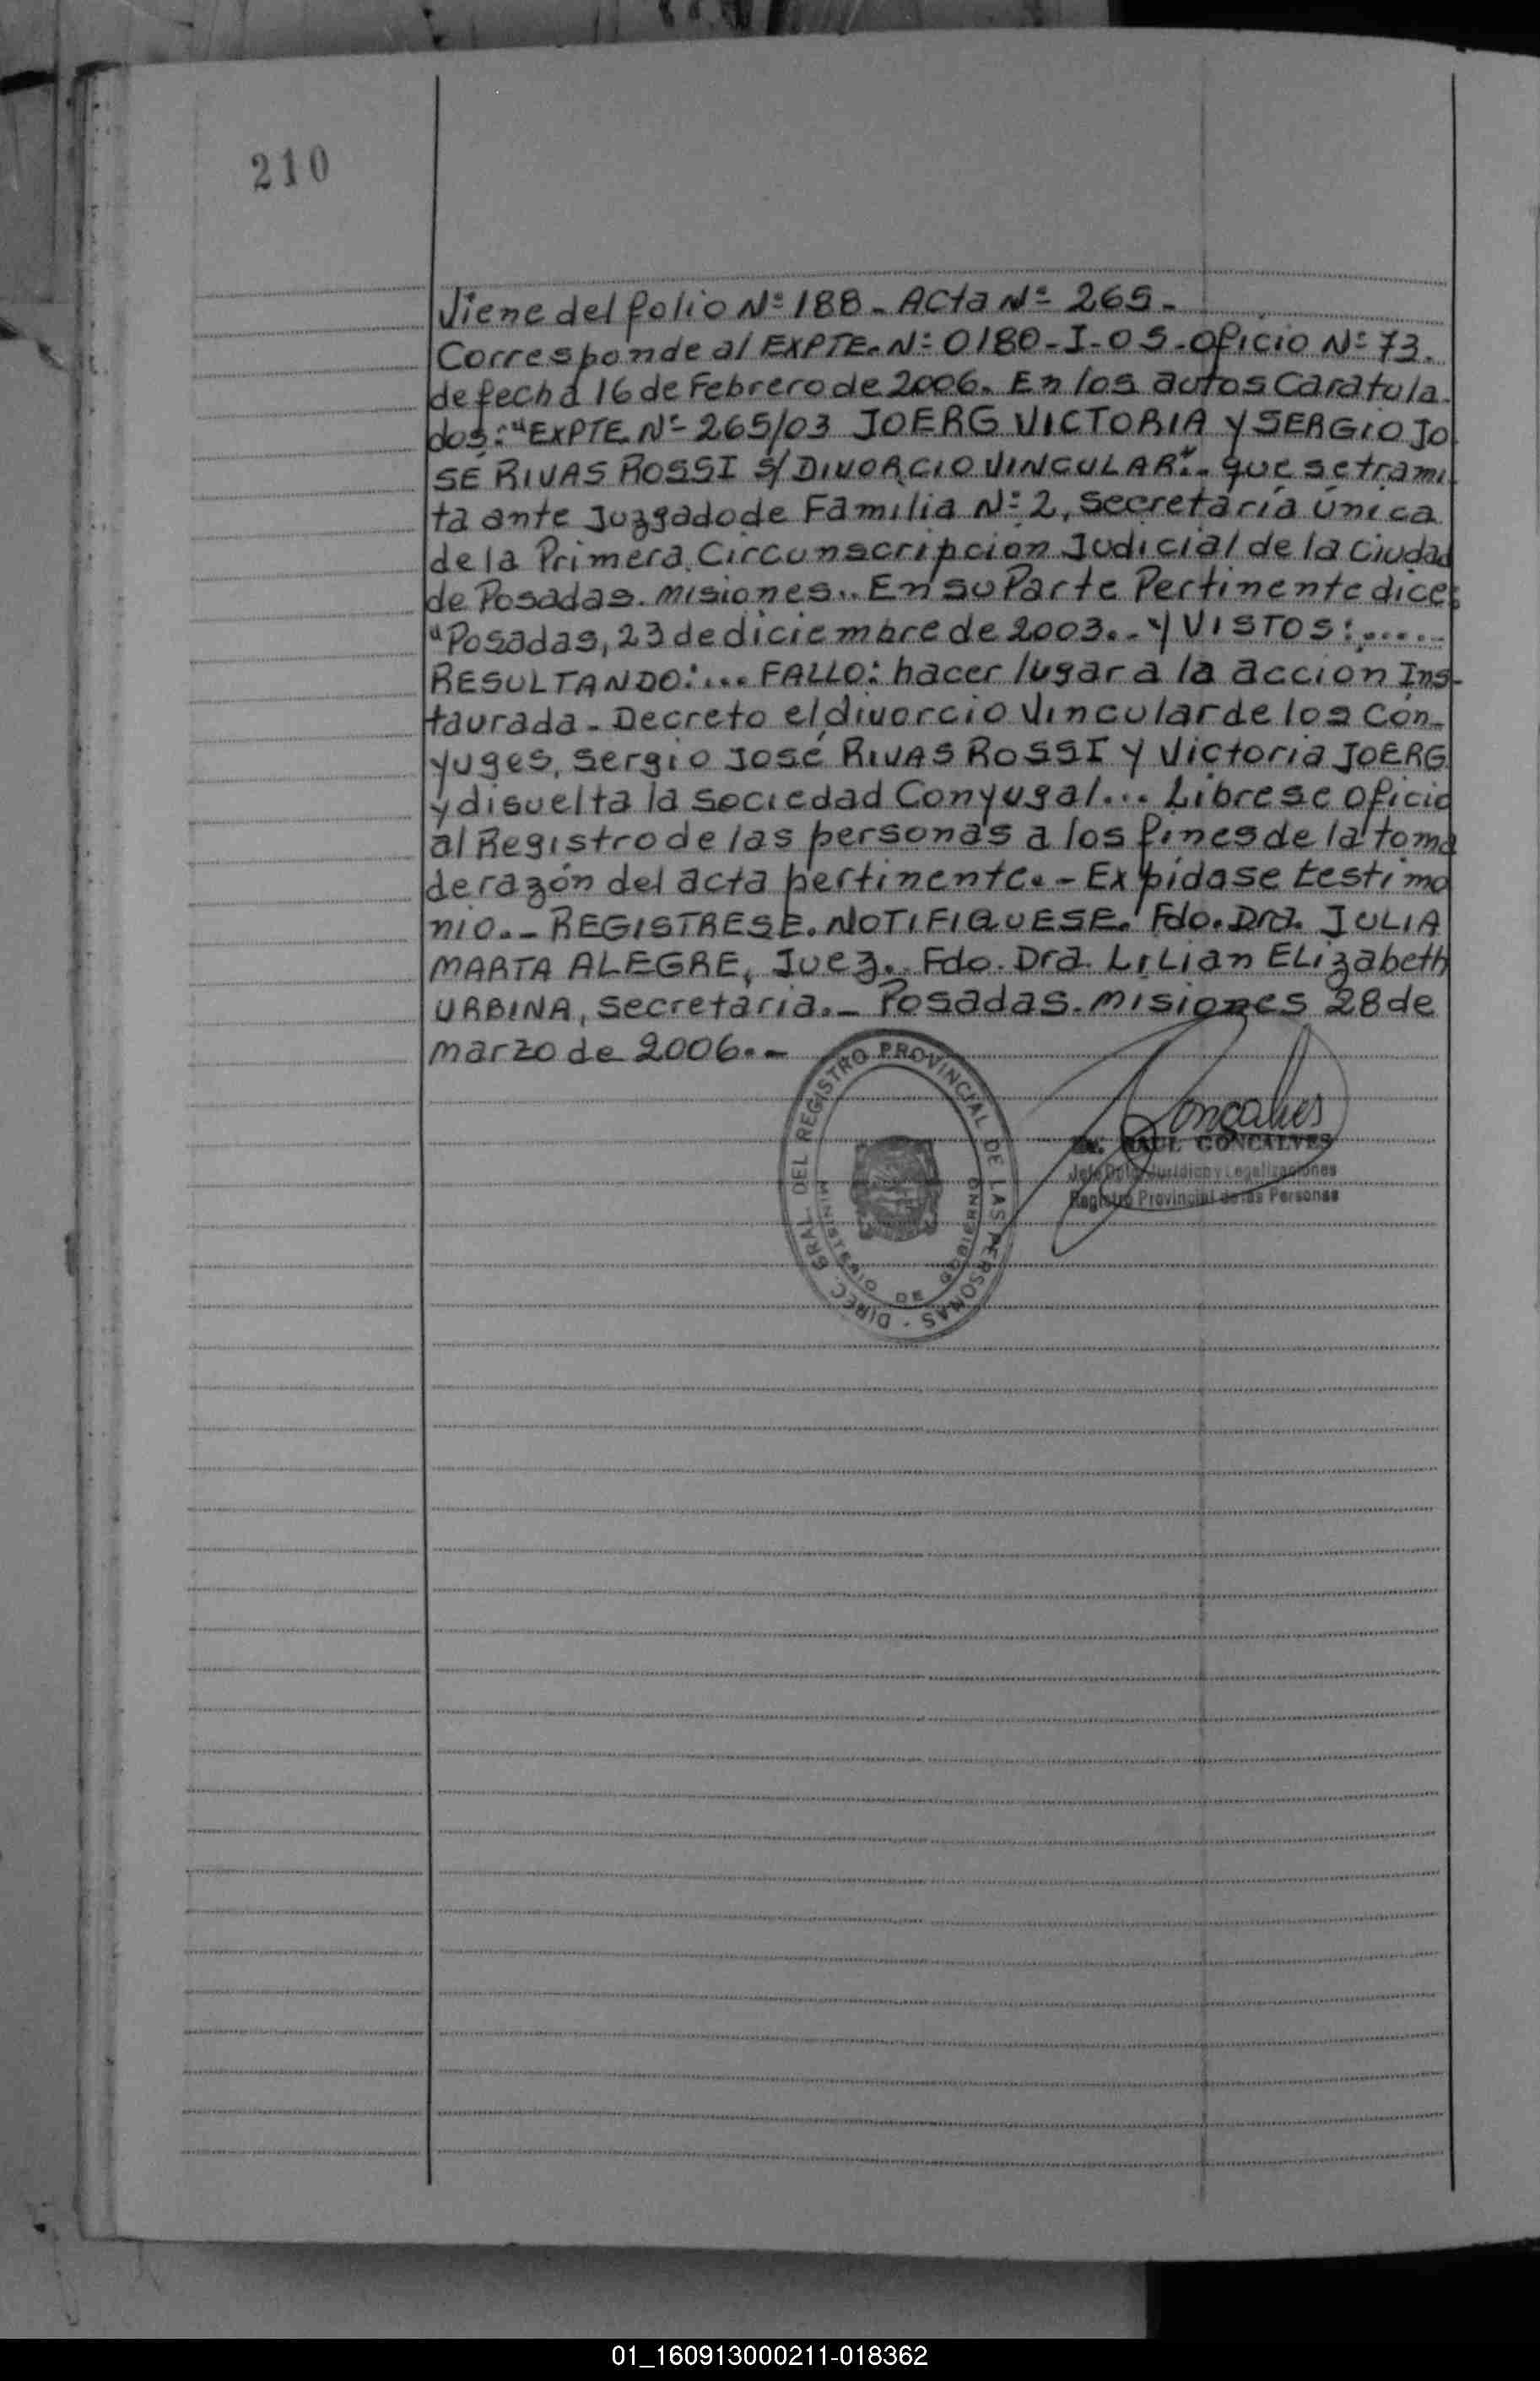 210
Viene del folio Nº 188 - Acta Nº 265 -
Corresponde al EXPTE. Nº 0180 - I - 05 - Oficio Nº 73.
de fecha 16 de Febrero de 2006. En los autos Caratula-
dos: "EXPTE. Nº 265/03 JOERG VICTORIA y SERGIO JO
SÉ RIVAS ROSSI S/ DIVORCIO VINCULAR". que se trami
ta ante Juzgado de Familia Nº 2, secretaría única
de la Primera Circunscripcion Judicial de la Ciudad
de Posadas. misiones.. En su Parte Pertinente dice:
"Posadas, 23 de diciembre de 2003.. Y VISTOS: ......
RESULTANDO: ... FALLO: hacer lugar a la accion Ins-
taurada - Decreto el divorcio vincular de los Cón-
yuges, Sergio José RIVAS ROSSI y Victoria JOERG
y disuelta la sociedad Conyugal... Librese oficio
al Registro de las personas a los fines de la toma
de razón del acta pertinente. - Expídase testimo
nio. - REGISTRESE. NOTIFIQUESE. Fdo. Dra. JULIA
MARTA ALEGRE, Juez. Fdo. Dra. LiLian ELizabeth
URBINA, secretaria. - Posadas. misiones 28 de
marzo de 2006. -
DIREC. GRAL. DEL REGISTRO PROVINCIAL DE LAS PERSONAS
MINISTERIO DE GOBIERNO
Gonçalves
Dr. RAUL GONCALVES
Jefe Dpto. Juridico y Legalizaciones
Registro Provincial de las Personas
01_160913000211-018362